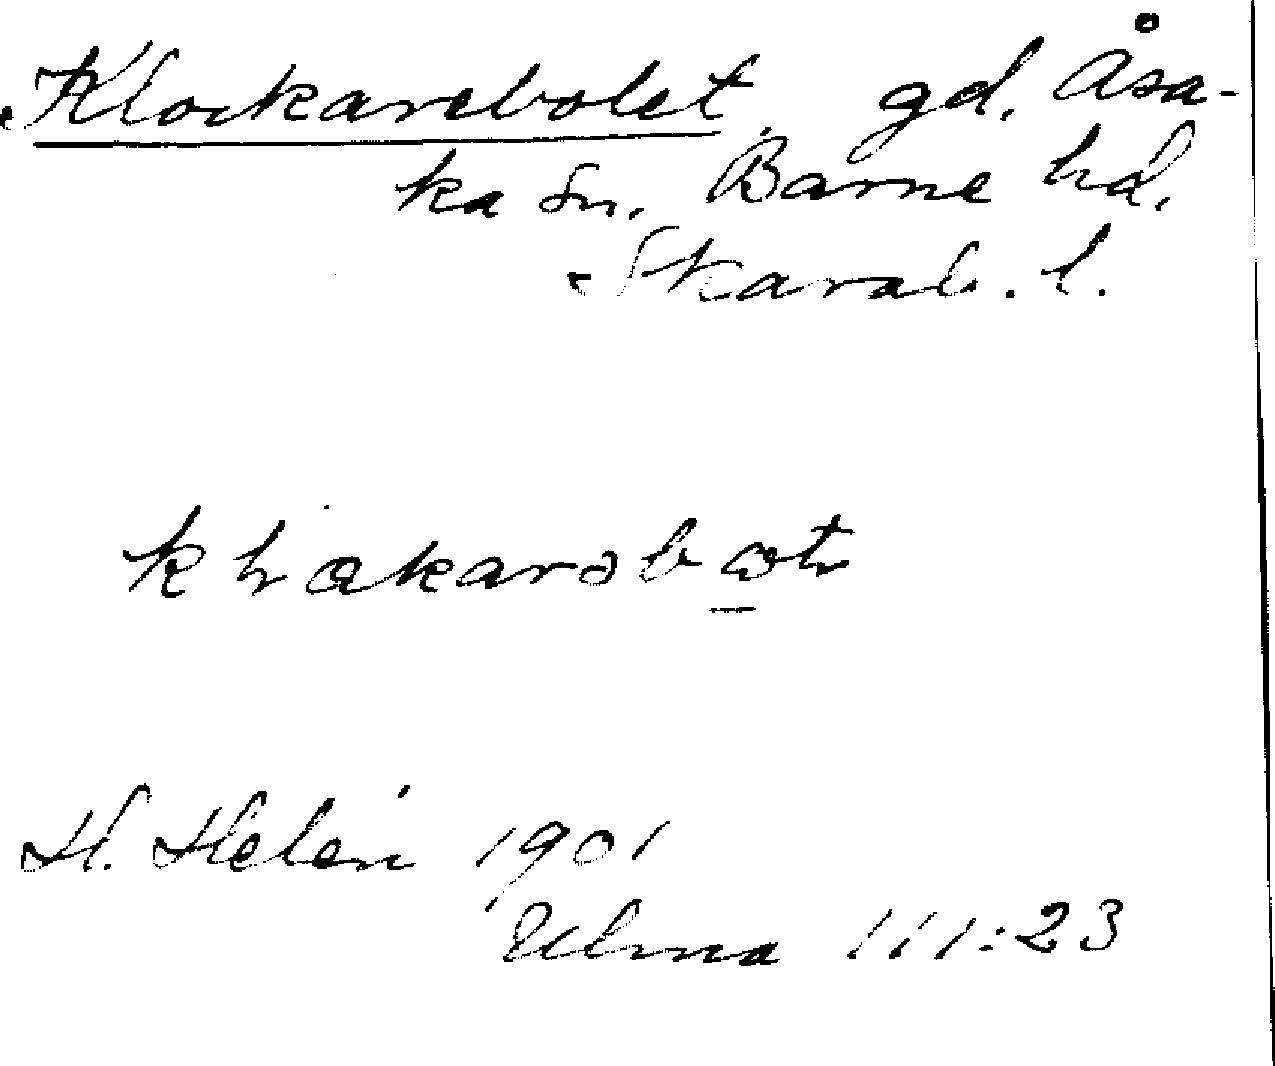 Klockarebolet, gd. Åsa-
ka sn. Barne hd.
Skarab. l.
H. Helén 1901
Ulma 111:23